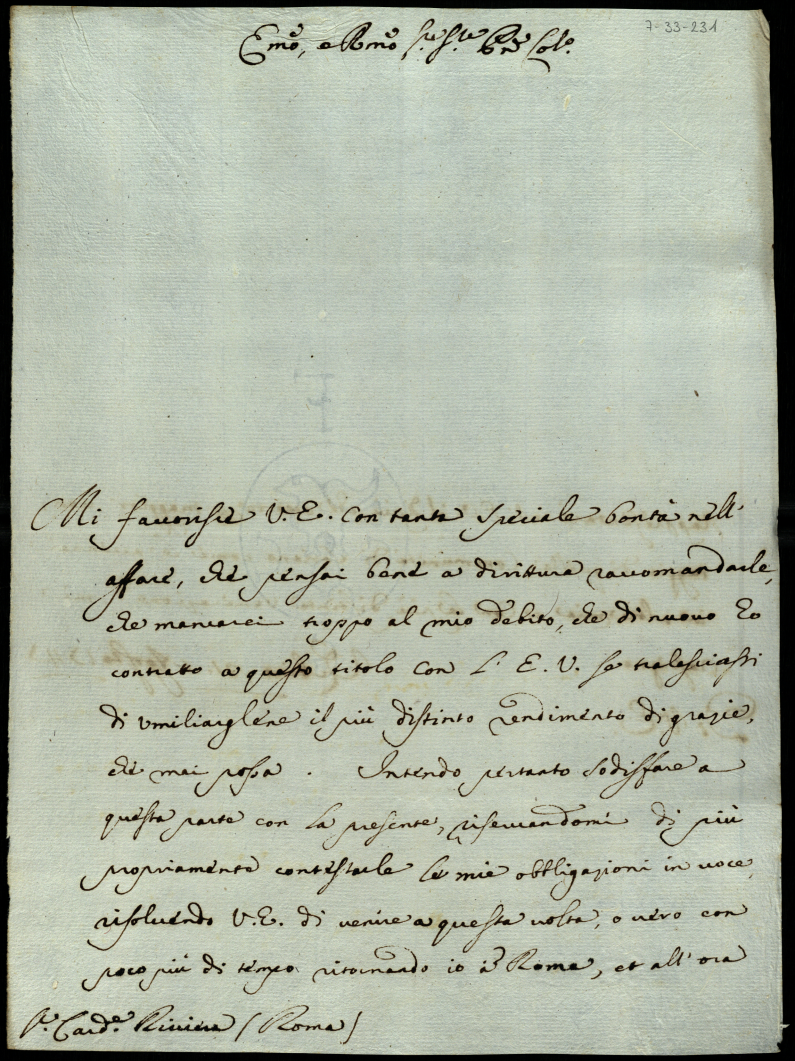 7-33-231
Em̃o, e Rm̃o Sre. Sre. Prõne Colmo.
Mi favorisce V. E. con tanta speciale bontà nell'
affare, che pensai bene a dirittura raccomandarle,
che mancarei troppo al mio debito, che di nuovo ho
contratto a questo titolo con L' E. V. se tralasciassi
di umiliargliene il più distinto rendimento di grazie,
che mai possa. Intendo pertanto sodisfare a
questa parte con la presente, riservandomi di più
propriamente contestarle le mie obbligazioni in voce,
risolvendo V. E. di venire a questa volta, o vero con
poco più di tempo ritornando io à Roma, et all' ora
Sr. Card.e Riviera (Roma)